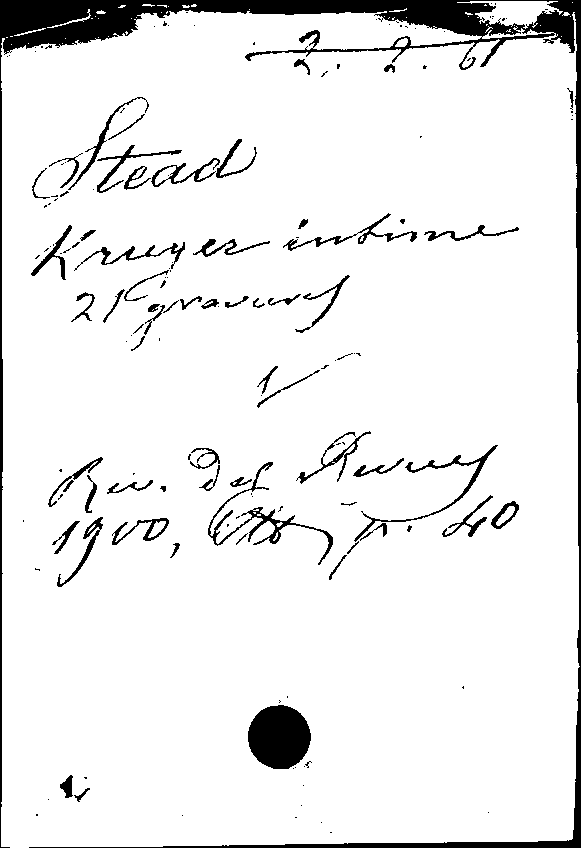 2. 2. 61
Stead
Kruger intime
21 gravures
Rev. des Revues
1900, Oct, p. 40